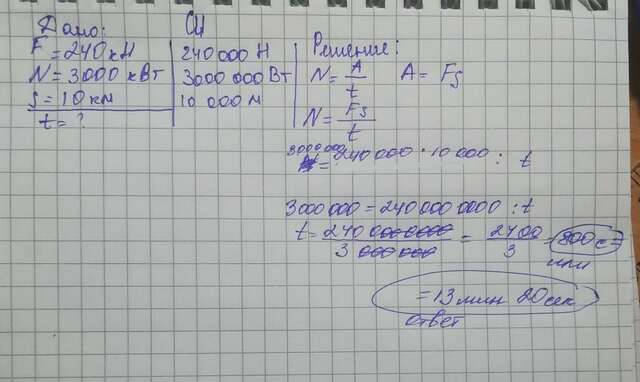 Дано:
F = 240 кН
N = 3000 кВт
s = 10 км
t = ?
СИ
240 000 Н
3000 000 Вт
10 000 м
Решение:
N = A/t A = Fs
N = Fs/t
3000 000 = 240 000 · 10 000 : t
3000 000 = 240 000 0000 : t
t = 240 000 0000/3 000 000 = 2400/3 = 800 с =
или
= 13 мин 20 сек
ответ